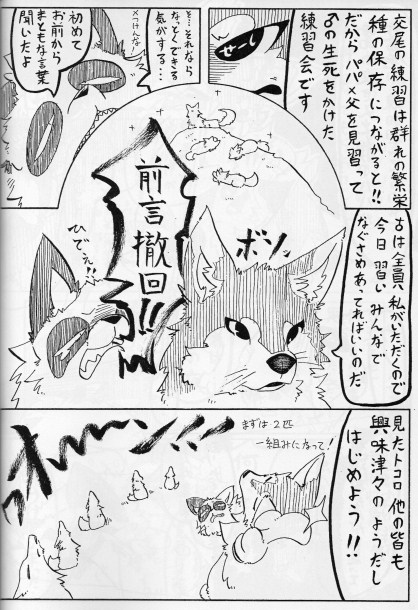 交尾の練習は群れの繁栄
種の保存につながると!!
だからパパ×父を見習って
♂の生死をかけた
練習会です
せーし
そ…それなら
なっとくできる
気がする…
めっけんな
初めて
お前から
まともな言葉
聞いたよ
♀は全員私がいただくので
今日習いみんなで
なぐさめあってればいいのだ
ボソッ
前言撤回!!
ひでぇ!!
見たトコロ他の皆も
興味津々のようだし
はじめよう!!
まずは2匹
一組みになって!
オォーン!!!